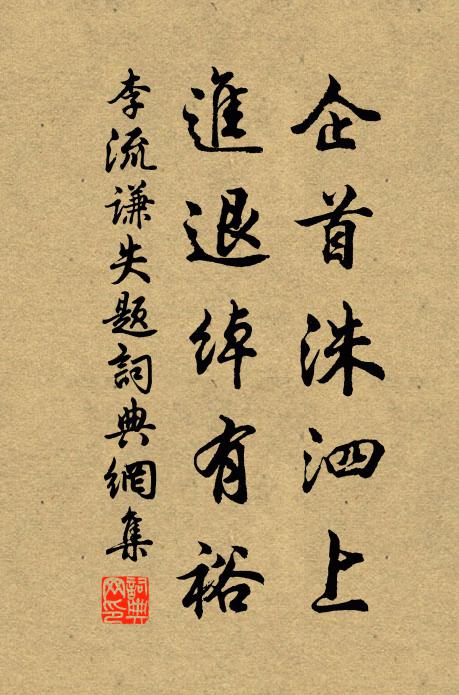 企首洙泗上
進退綽有裕
李流谦失题詞典網集
詞典网印